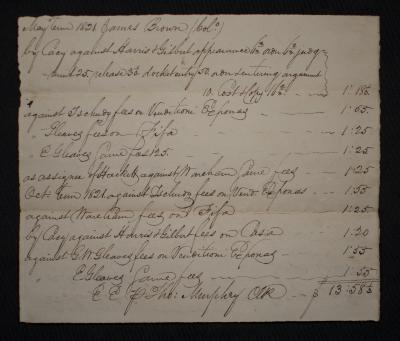 May Term 1821 James Brown (Colo)
by Casy against Harris & Gilbert appearance 6½ own 6½ judg-
ment 25, release 56 docket entry 50 own entering argument
10. Cost & Copy 16½ - - 1:18½
against Ischudy fees on Venditioni Exponas - - 1:65
" Gleaves fees on Fifa - - 1:25
" E Gleaves Same fees 125 - - 1:25
as assignee of Hackett against Wareham Same fees - - 1:25
Oct Term 1821 against Ischudy fees on Vend. Exponas - 1:55
against Wareham fees on Fifa - - 1:25
by Casy against Harris & Gilbert fees on Casa - - 1:20
against G. W. Gleaves fees on Venditioni Exponas - - 1:55
" E Gleaves Same fees - - 1:55
E E p Tho: Murphry Clk - - $ 13:58½